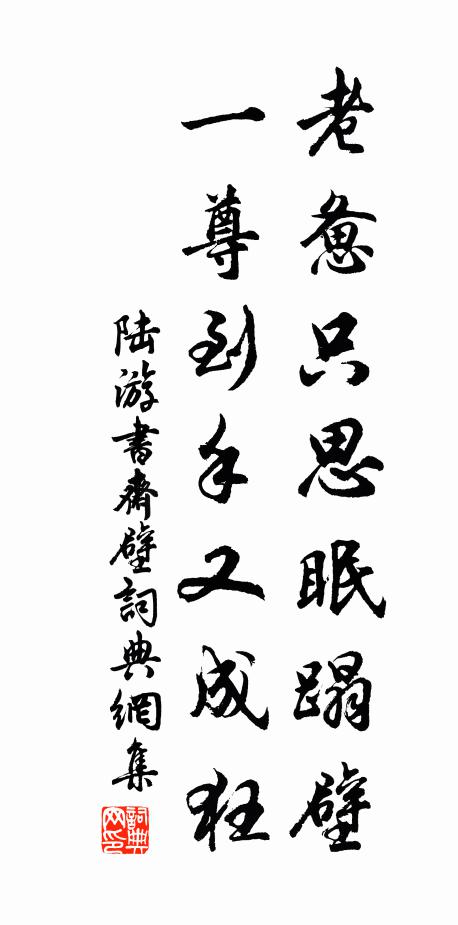 老惫只思眠蹋壁
一尊到手又成狂
陆游书斋壁词典網集
詞典网印